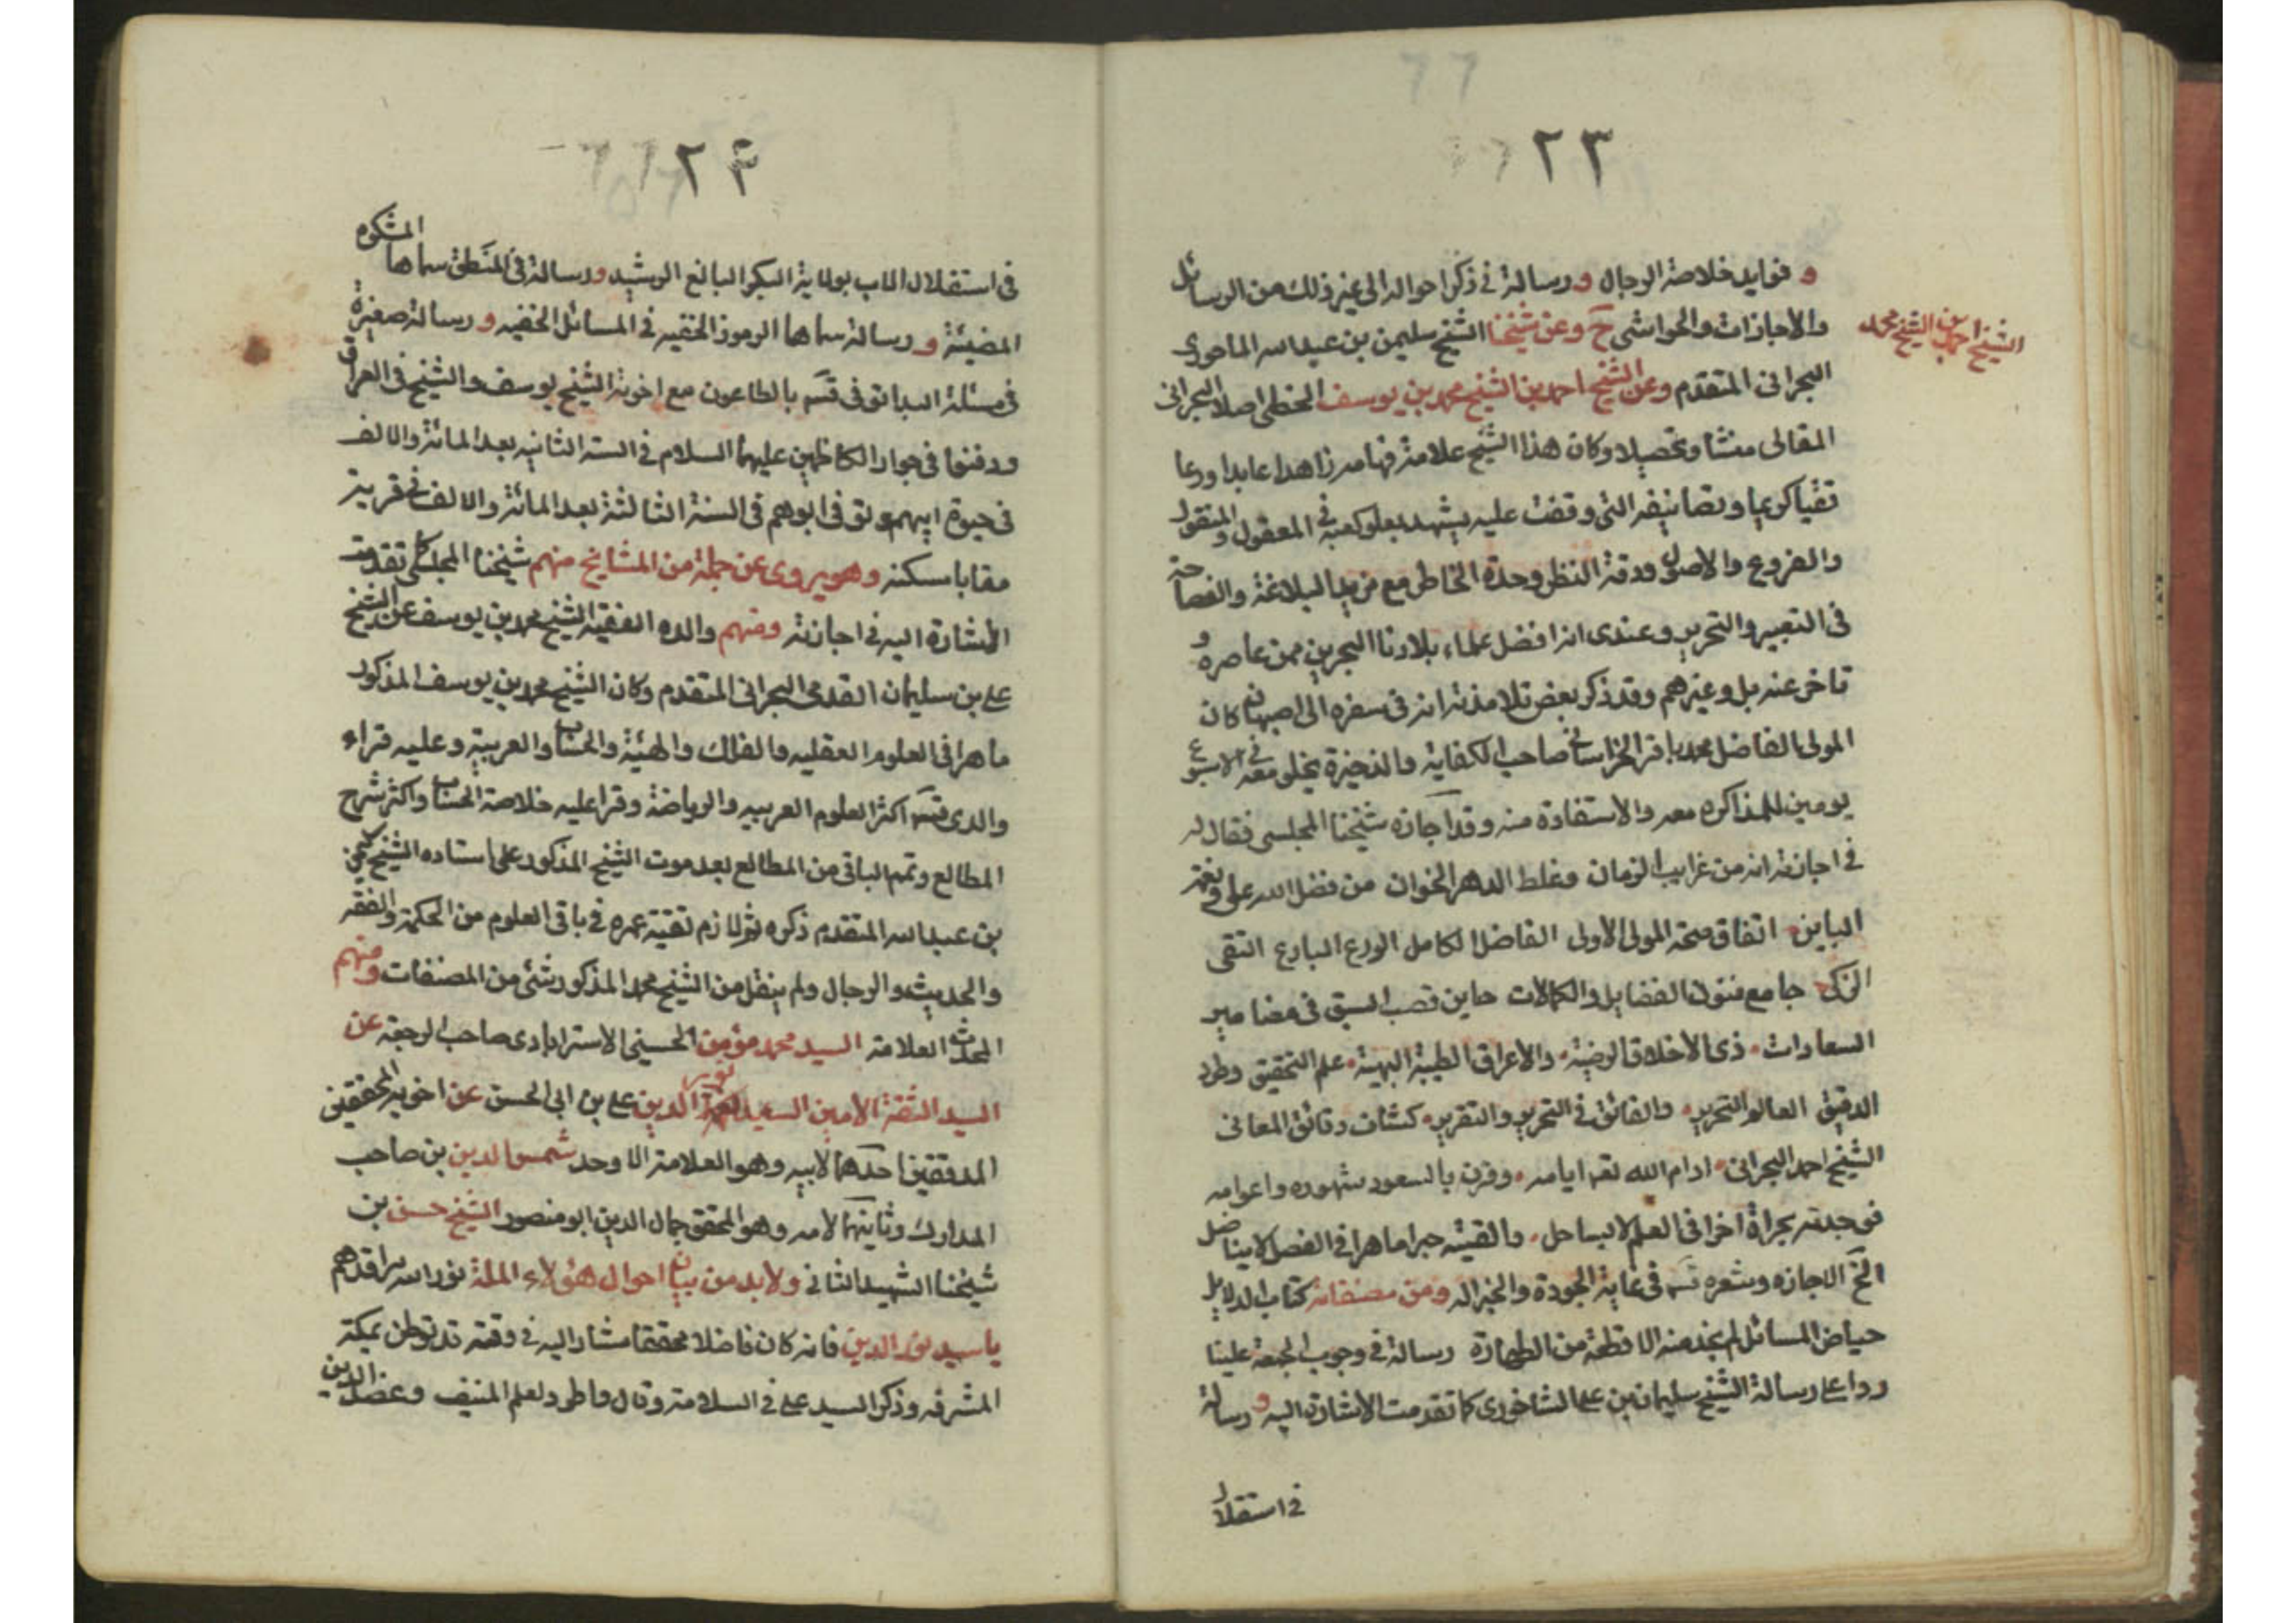 ٢٣
و فوايد خلاصة الرجال و رسالة في ذكر احواله الى غير ذلك من الرسائل
والاجازات والحواشى ح وعن شيخنا الشيخ سليمن بن عبد الله الماحوزى
الشيخ احمد بن الشيخ محمد
البحرانى المتقدم وعن الشيخ احمد بن الشيخ محمد بن يوسف الخطى اصلا البحرانى
المقالى منشا وتحصيلا وكان هذا الشيخ علامة فهامه زاهدا عابدا ورعا
تقيا كريما وتصانيفه التى وقفت عليه يشهد بعلو كعبه في المعقول والمنقول
والفروع والاصول ودقة النظر وحدة الخاطر مع مزيد البلاغة والفصاحة
فى التعبير والتحرير وعندى انه افضل علماء بلادنا البحرين ممن عاصره و
تاخر عنه بل وغيرهم وقد ذكر بعض تلامذته انه فى سفره الى اصبهان كان
المولى الفاضل محمد باقر الخراسانى صاحب الكفاية والذخيرة يخلى معه في الاسبوع
يومين للمذاكره معه والاستفادة منه وقد اجازه شيخنا المجلسى فقال له
في اجازته انه من غرايب الزمان وغلط الدهر الخوان من فضل الله على ونعمه
الباين اتفاق صحة المولى الاولى الفاضل الكامل الورع البارع التقى
الزكى جامع فنون الفضايل والكمالات حاين قصب السبق فى مضامير
السعادات ذى الاخلاق الرضية والاعراق الطيبة البهية علم التحقيق وطود
الدقيق العالم التحرير والفائق في التحرير والتقرير كشاف دقائق المعانى
الشيخ احمد البحرانى ادام الله تعه ايامه وقرن بالسعود شهوره واعوامه
فوجدته بحراة اخرا فى العلم لا يساحل والقيته حبرا ماهرا فى الفضل لا يناضل
الخ الاجازه وشعره قسم فى غاية الجودة والجزاله ومن مصنفاته كتاب الدلايل
حياض المسائل لم يخد منه الا قطعة من الطهارة رسالة في وجوب الجمعة علينا
ردا على رسالة الشيخ سليمان بن على الشاخورى كما تقدمت الاشارة اليه و رسالة
في استقلال
٢۴
فى استقلال الاب بولاية البكر البالغ الرشيد و رسالة فى المنطق سماها المشكوة
المضيئة و رسالة سماها الرموز الخفيه في المسائل الخفيه و رسالة صغيرة
فى مسئلة البدا توفى قسم بالطاعون مع اخوية الشيخ يوسف والشيخ فى العراق
ودفنوا فى جوار الكاظمين عليهما السلام في السنة الثانيه بعد المائة والالف
فى حيوة ابيهم وتوفى ابوهم فى السنة الثالثة بعد المائة والالف فى قرية
مقابا مسكنه وهو يروى عن جملة من المشايخ منهم شيخنا المجلسى كما تقدمت
الاشارة اليه في اجازته ومنهم والده الفقيه الشيخ محمد بن يوسف عن الشيخ
على بن سليمان القدمى البحرانى المتقدم وكان الشيخ محمد بن يوسف المذكور
ماهرا فى العلوم العقليه والفلك والهيئة والحساب والعربية وعليه قراء
والدى قسم اكثر العلوم العربيه والرياضة وقرا عليه خلاصة الحساب واكثر شرح
المطالع وتمم الباقى من المطالع بعد موت الشيخ المذكور على استاده الشيخ سليمن
بن عبد الله المتقدم ذكره ثم لازم تقية عمره في باقى العلوم من الحكمة والفقه
والحديث والرجال ولم ينقل من الشيخ محمد المذكور شئ من المصنفات ومنهم
المحدث العلامة السيد محمد مؤمن الحسينى الاسترابادى صاحب الرجعة عن
السيد الثقة الامين السعيد نور الدين على بن ابى الحسن عن اخويه المحققين
المدققين احدهما لابيه وهو العلامة الاوحد شمس الدين بن صاحب
المدارك وثانيهما لامه وهو المحقق جمال الدين ابو منصور الشيخ حسن بن
شيخنا الشهيد الثانى ولابد من بيان احوال هؤلاء الملة نور الله مراقدهم
يا سيد نور الدين فانه كان فاضلا محققا مشار اليه في وقته قد توطن بمكة
المشرفه وذكر السيد على في السلامة وقال وطود لعلم المنيف وعضل الدين